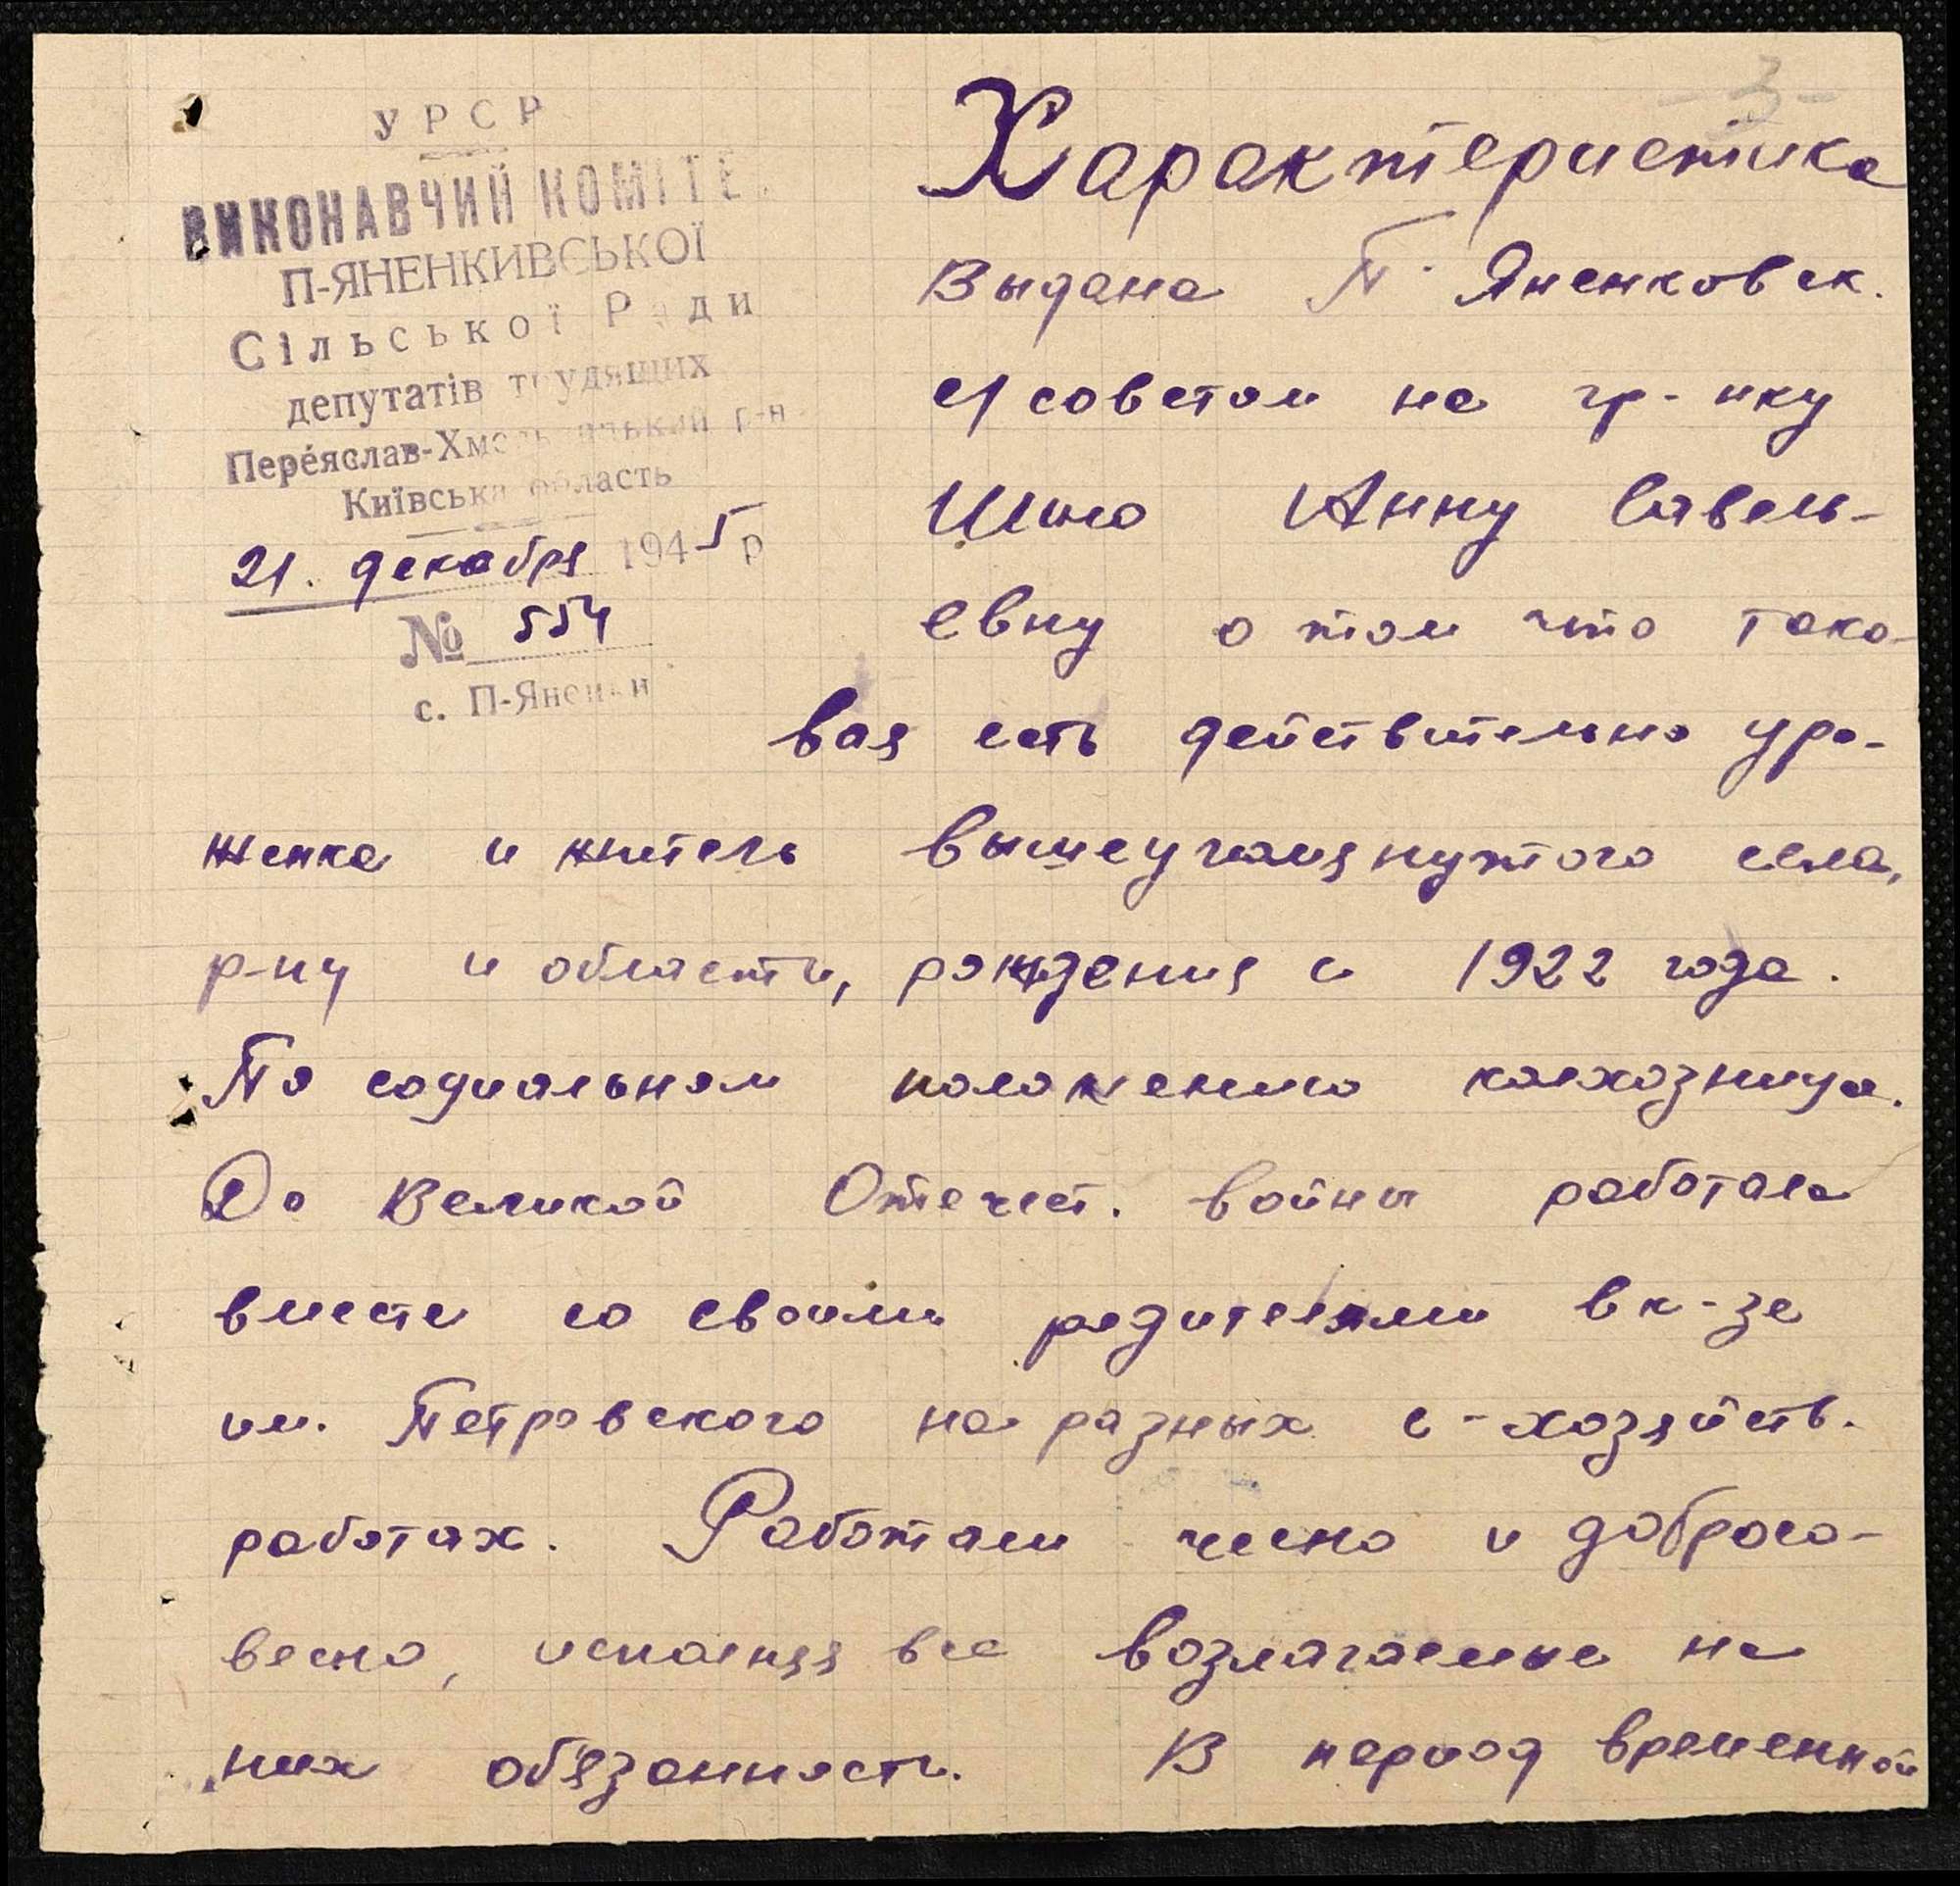 - 3 -
УРСР
ВИКОНАВЧИЙ КОМІТЕ
П-ЯНЕНКИВСЬКОЇ
Сільської Ради
депутатів трудящих
Переяслав-Хмельницький р-н
Київська область
21. декабря 1945 р
№ 554
с. П-Яненки
Характеристика
Выдана П. Яненковск.
с/советом на гр-нку
Шило Анну Савель-
евну о том что тако-
вая есть действительно уро-
женка и житель вышеупомянутого села,
р-ну и области, рождения с 1922 года.
По социальном положению колхозница.
До Великой Отечест. войны работала
вместе со своими родителями в к-зе
им. Петровского на разных с-хозяйств.
работах. Работали чесно и доброго-
весно, исполняя все возлагаемые на
них обязанность. В период временной